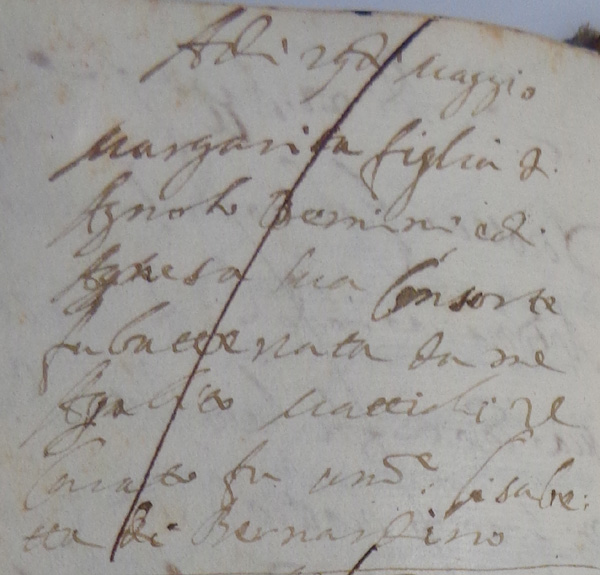 Adi 29 di Maggio
Margarita figlia d.
Agnolo Bernini ed.
Agnesa sua Consorte
fu battezzata da me
Curato fu com.e Lisabe:
tta di Bernardino